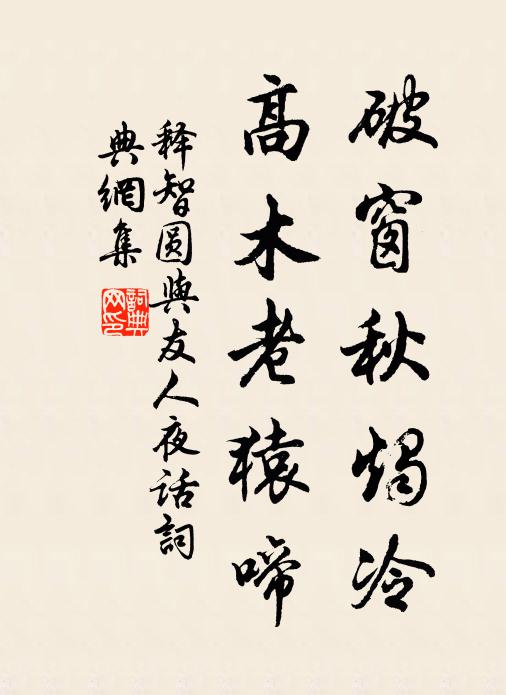 破窗秋燭冷
高木老猿啼
释智圆與友人夜话詞
典網集
詞典網印